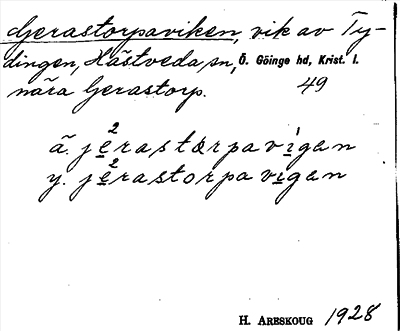 Gerastorpaviken, vik av Ty-
dingen, Hästveda sn, Ö. Göinge hd, Krist. l.
nära Gerastorp. 49
ä. je²rastårpavigan
y. je²rastorpavigan
H. ARESKOUG 1928